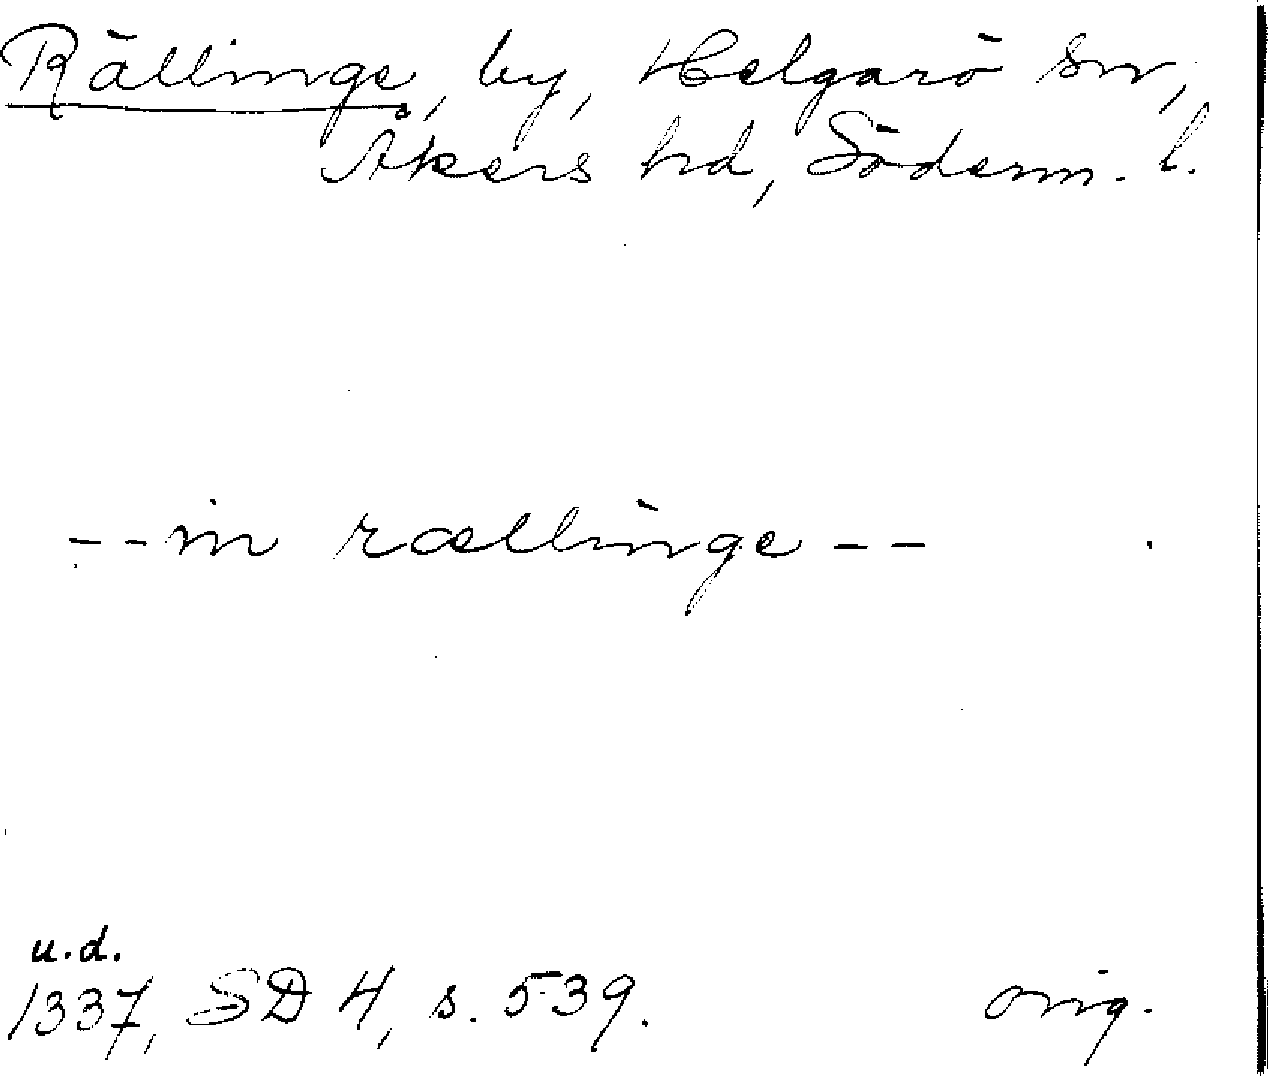 Rällinge, by, Helgarö sn,
Åkers hd, Söderm. l.
--in rællinge--
u.d.
1337, SD 4, s. 539. orig.